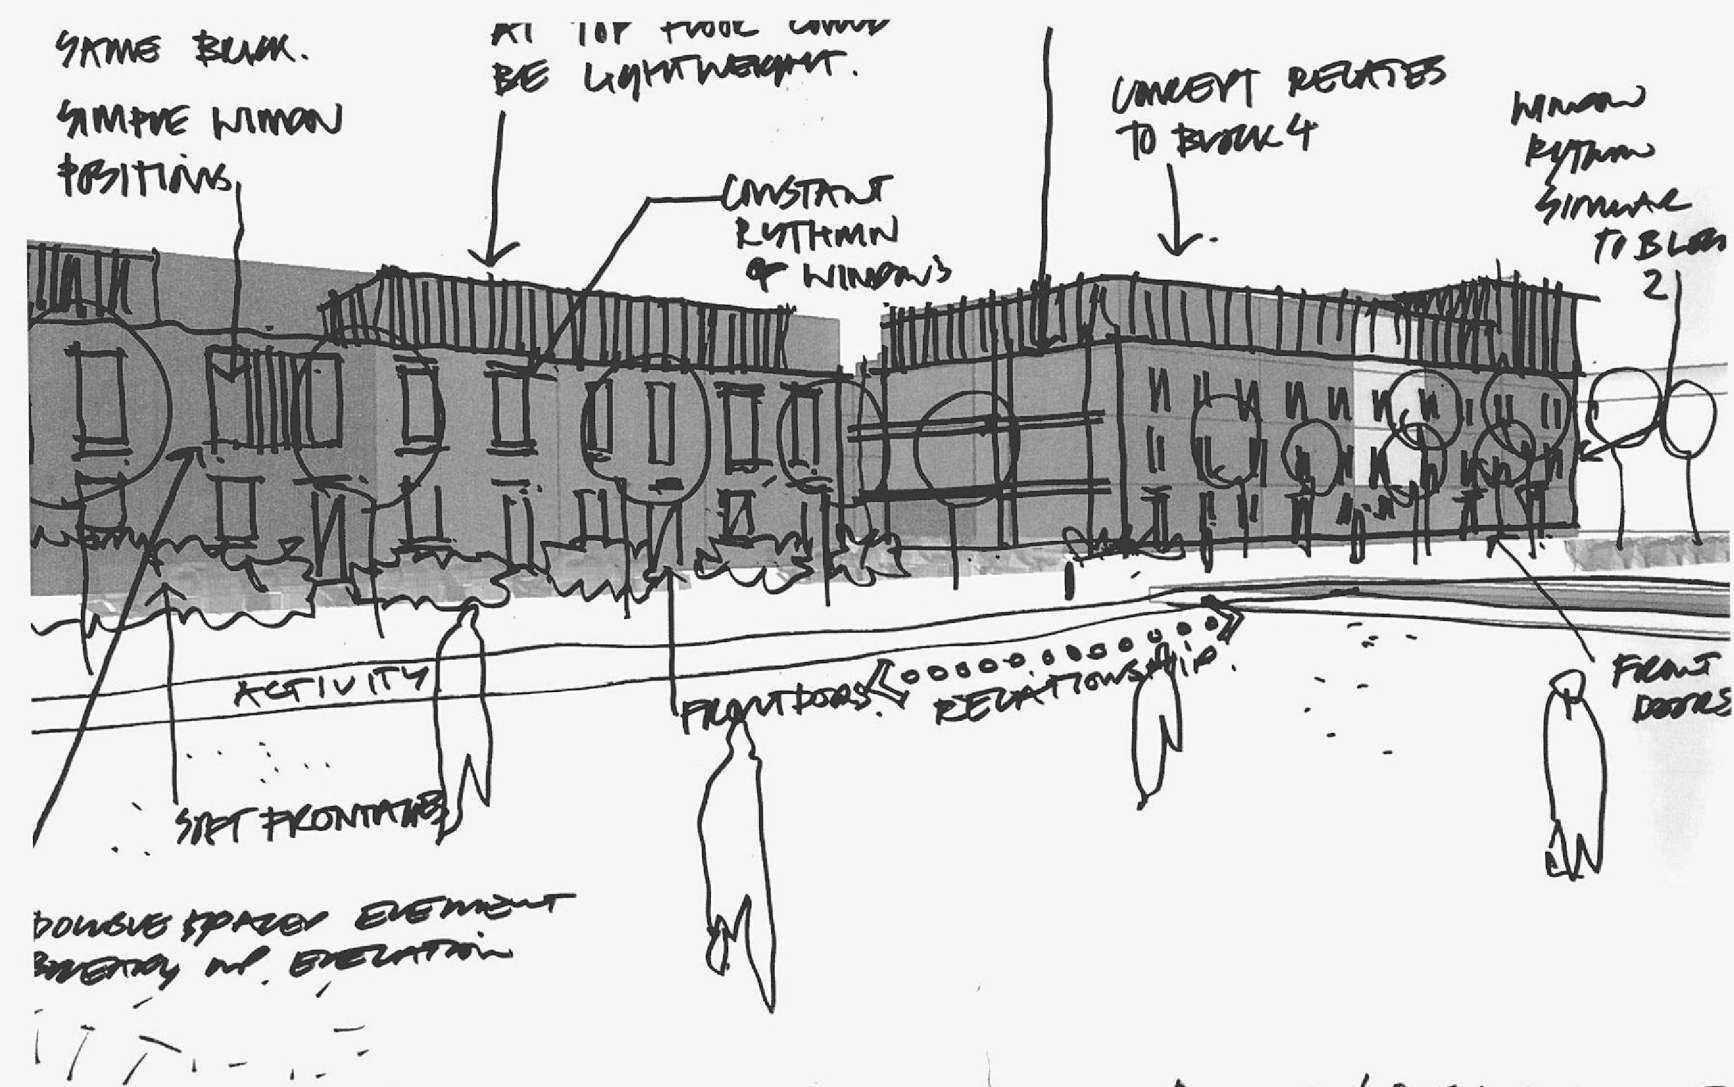 SAME BRICK.
SIMPLE WINDOW
POSITIONS
AT TOP FLOOR COULD
BE LIGHTWEIGHT.
CONSTANT
RYTHMN
OF WINDOWS
CONCEPT RELATES
TO BLOCK 4
WINDOW
RYTHM
SIMILAR
TO BLOCK
2
ACTIVITY
FRONT DOORS.
RELATIONSHIP.
FRONT
DOORS
SOFT FRONTAGES
DOUBLE SPACED ELEMENT
BREAKS UP ELEVATION